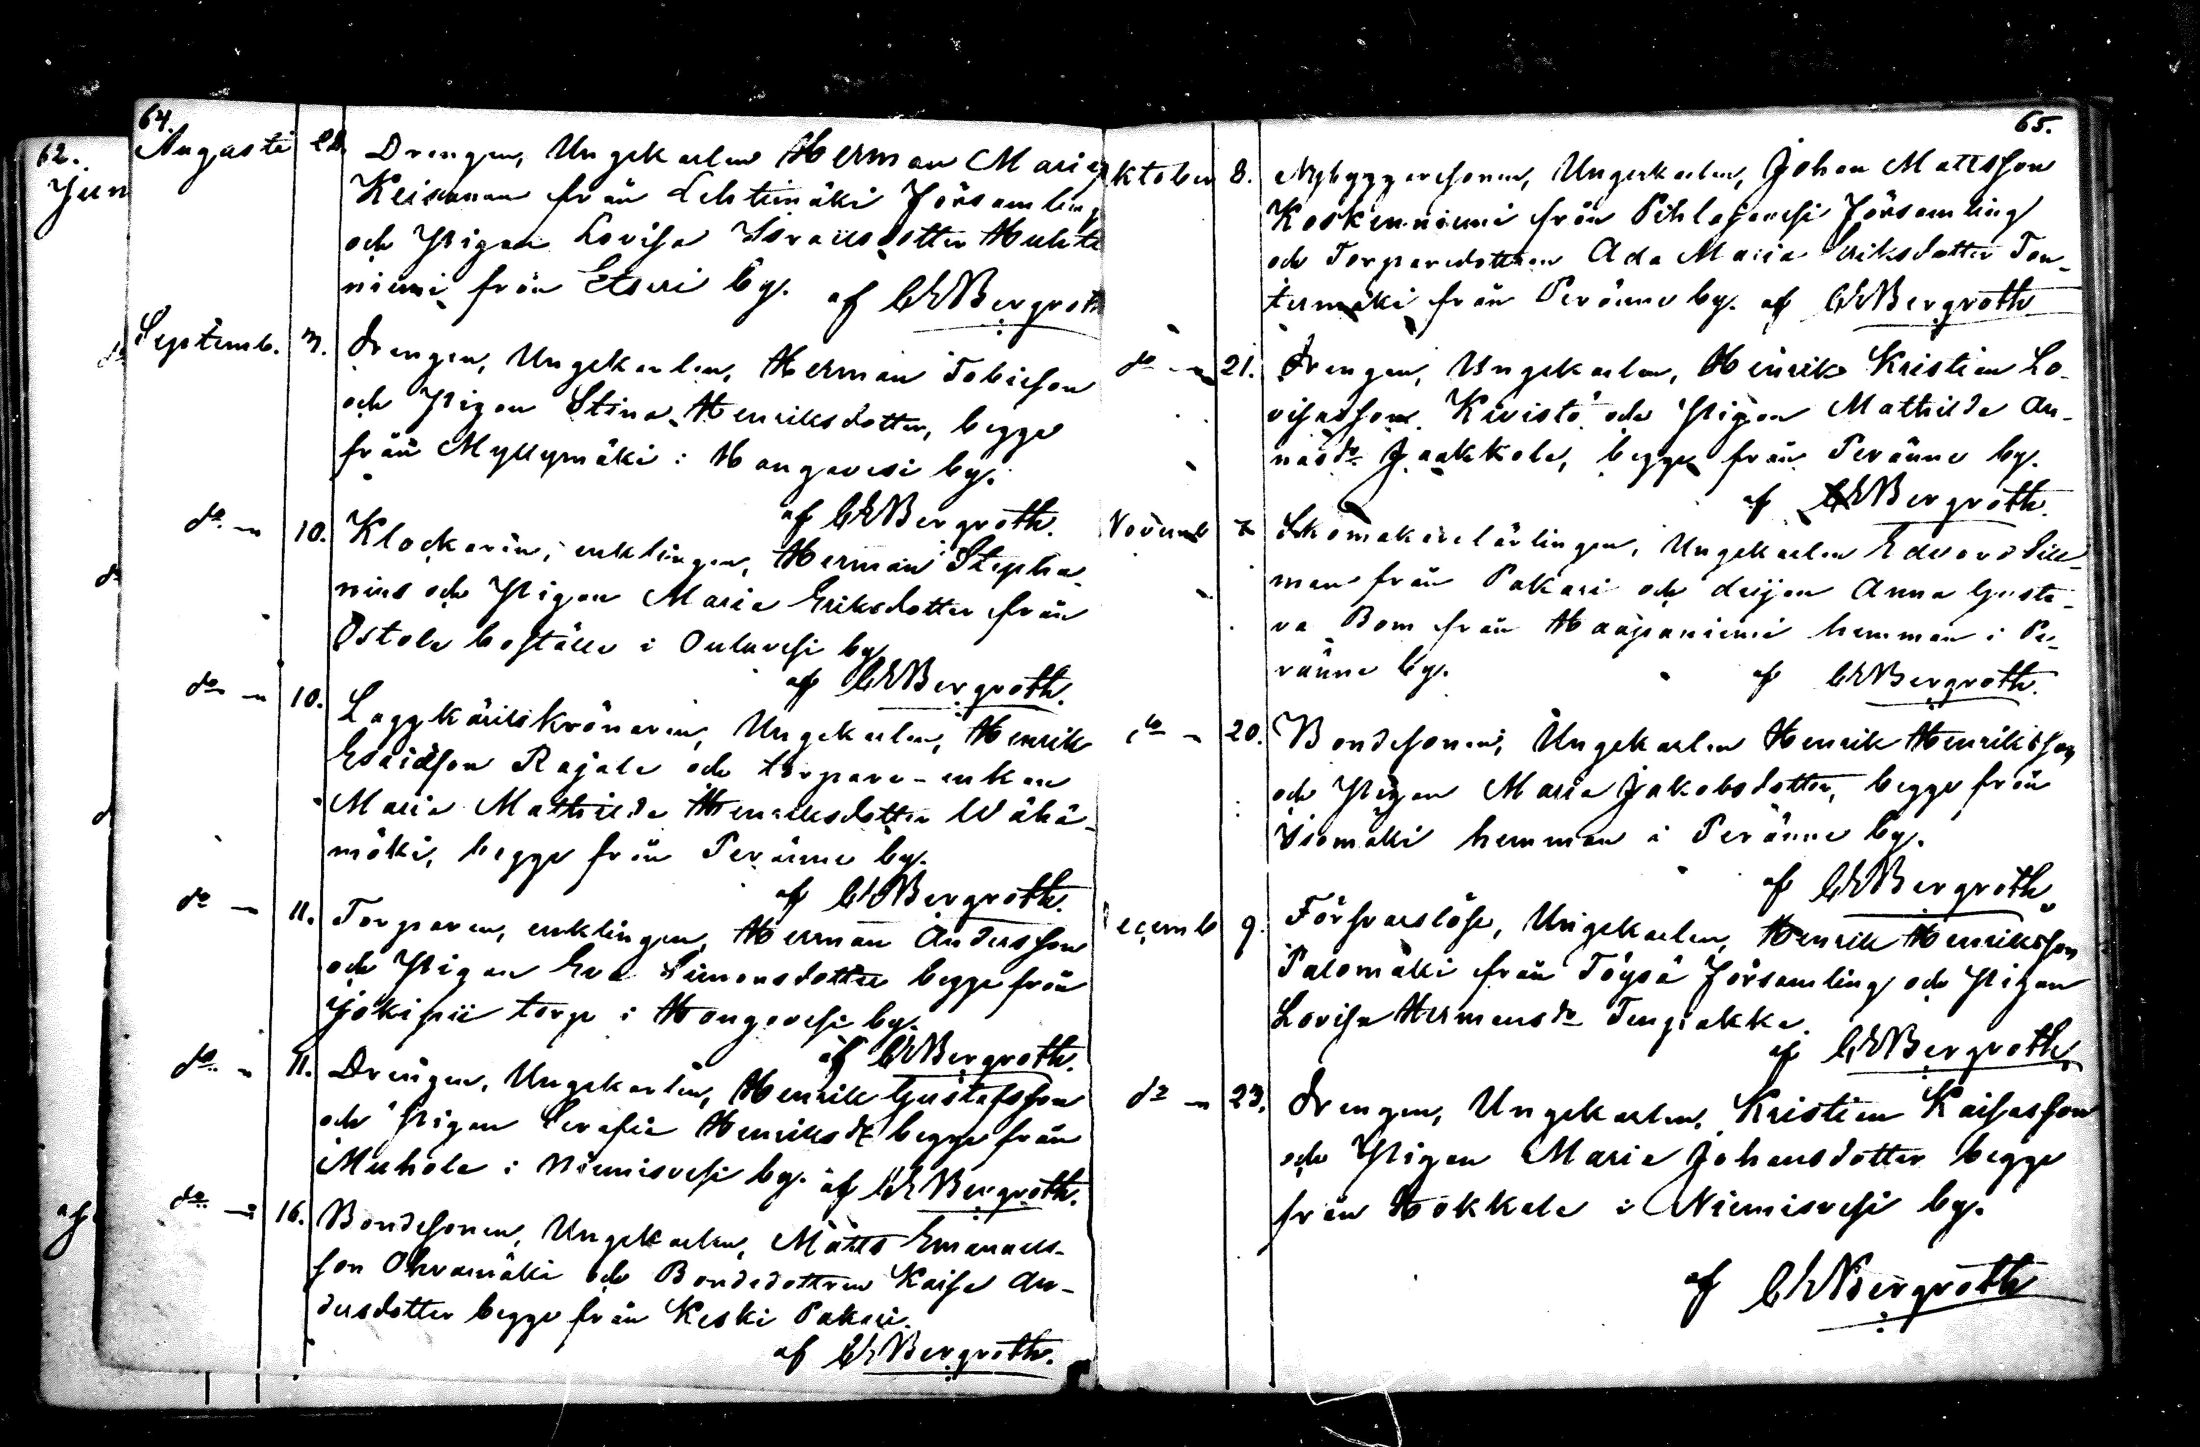 62.
Jun
64.
Augusti 20. Drengen, Ungekarlen Herman Maria
Keisanen från Lehtimäki Församling,
och Pigan Lovisa Israelsdotter Huhta
niemi från Etseri by. af CEBergroth
Septemb. 3. Drengen, Ungekarlen, Herman Tobiesson
och Pigan Stina Henriksdotter, begge
från Myllymäki i Hangavesi by.
af CEBergroth.
do 10. Klockaren, enklingen, Herman Stepha-
nius och Pigan Maria Eriksdotter från
Ostola boställe i Ouluvesi by
af CEBergroth.
do 10. Laggkärilskrönaren, Ungekarlen, Henrik
Esaiasson Rajala och torpare-enkan
Maria Mathilda Henriksdotter Wähä-
mäki, begge från Peränne by.
af CEBergroth.
do 11. Torparen, enklingen, Herman Andersson
och Pigan Eva Simonsdotter begge från
Jokipii torp i Hangavesi by.
af CEBergroth.
do 11. Drengen, Ungekarlen, Henrik Gustafsson
och Pigan Serafia Henriksdr begge från
Muhola i Niemisvesi by. af CEBergroth.
do 16. Bondesonen, Ungekarlen, Matts Emanuels-
son Ohramäki och Bondedottren Kaisa An-
dersdotter begge från Keski Pakari.
af CEBergroth.
65.
ktober 8. Nybyggaresonen, Ungekarlen, Johan Mattsson
Koskenniemi från Pihlajavesi Församling
och Torparedottren Ada Maria Eriksdotter Ton-
termäki från Peränne by. af CEBergroth
do 21. Drengen, Ungekarlen, Henrik Kristian Lo-
visasson Kivistö och Pigan Mathilda An-
nasdr Jaakkola, begge från Peränne by.
af CEBergroth.
Novemb 7 Skomakarelärlingen, Ungekarlen Edvard Sill-
man från Pakari och Pigan Anna Gusta-
va Bom från Haapaniemi hemman i Pe-
ränne by. af CEBergroth.
do 20. Bondesonen, Ungekarlen Henrik Henriksson
och Pigan Maria Jakobsdotter, begge från
Visomäki hemman i Peränne by.
af CEBergroth.
ecemb 9. Försvarslöse, Ungekarlen, Henrik Henriksson
Palomäki från Töysä Församling och Pigan
Lovisa Hermansdr
af CEBergroth
do 23. Drengen, Ungekarlen, Kristian Kaisasson
och Pigan Maria Johansdotter begge
från Hokkala i Niemisvesi by.
af CEBergroth